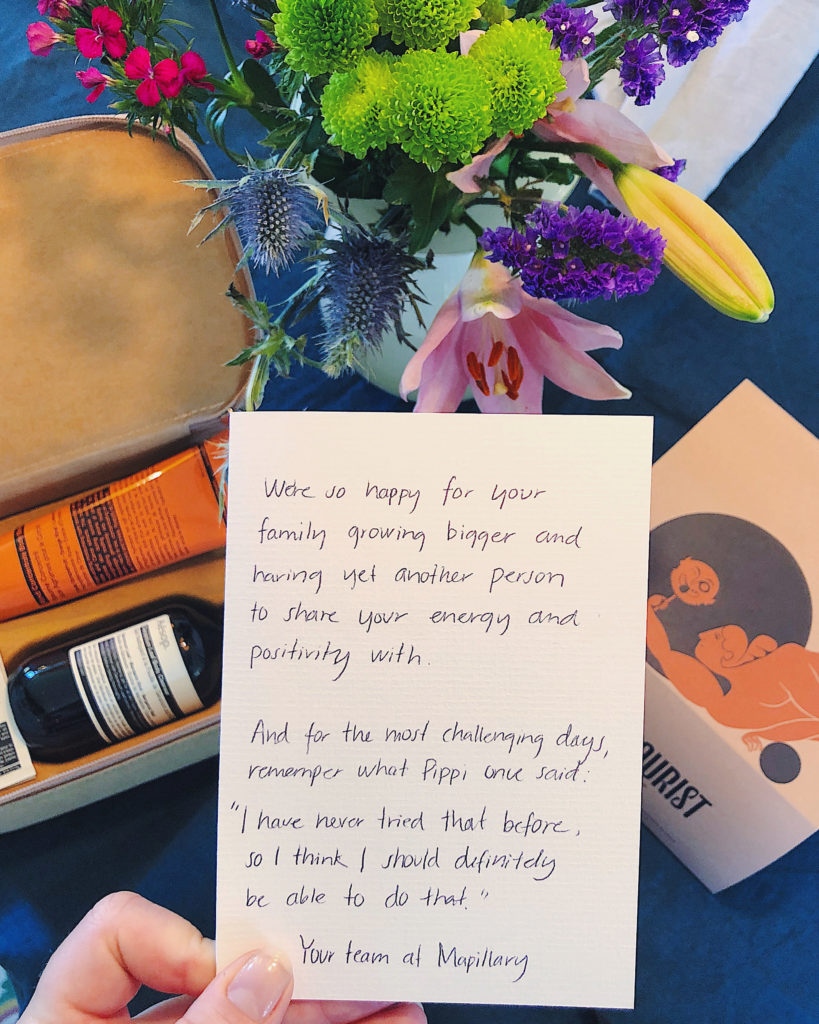 We're so happy for your
family growing bigger and
having yet another person
to share your energy and
positivity with.
And for the most challenging days,
rememper what Pippi once said:
"I have never tried that before,
so I think I should definitely
be able to do that."
Your team at Mapillary
Aēsop.
OURIST